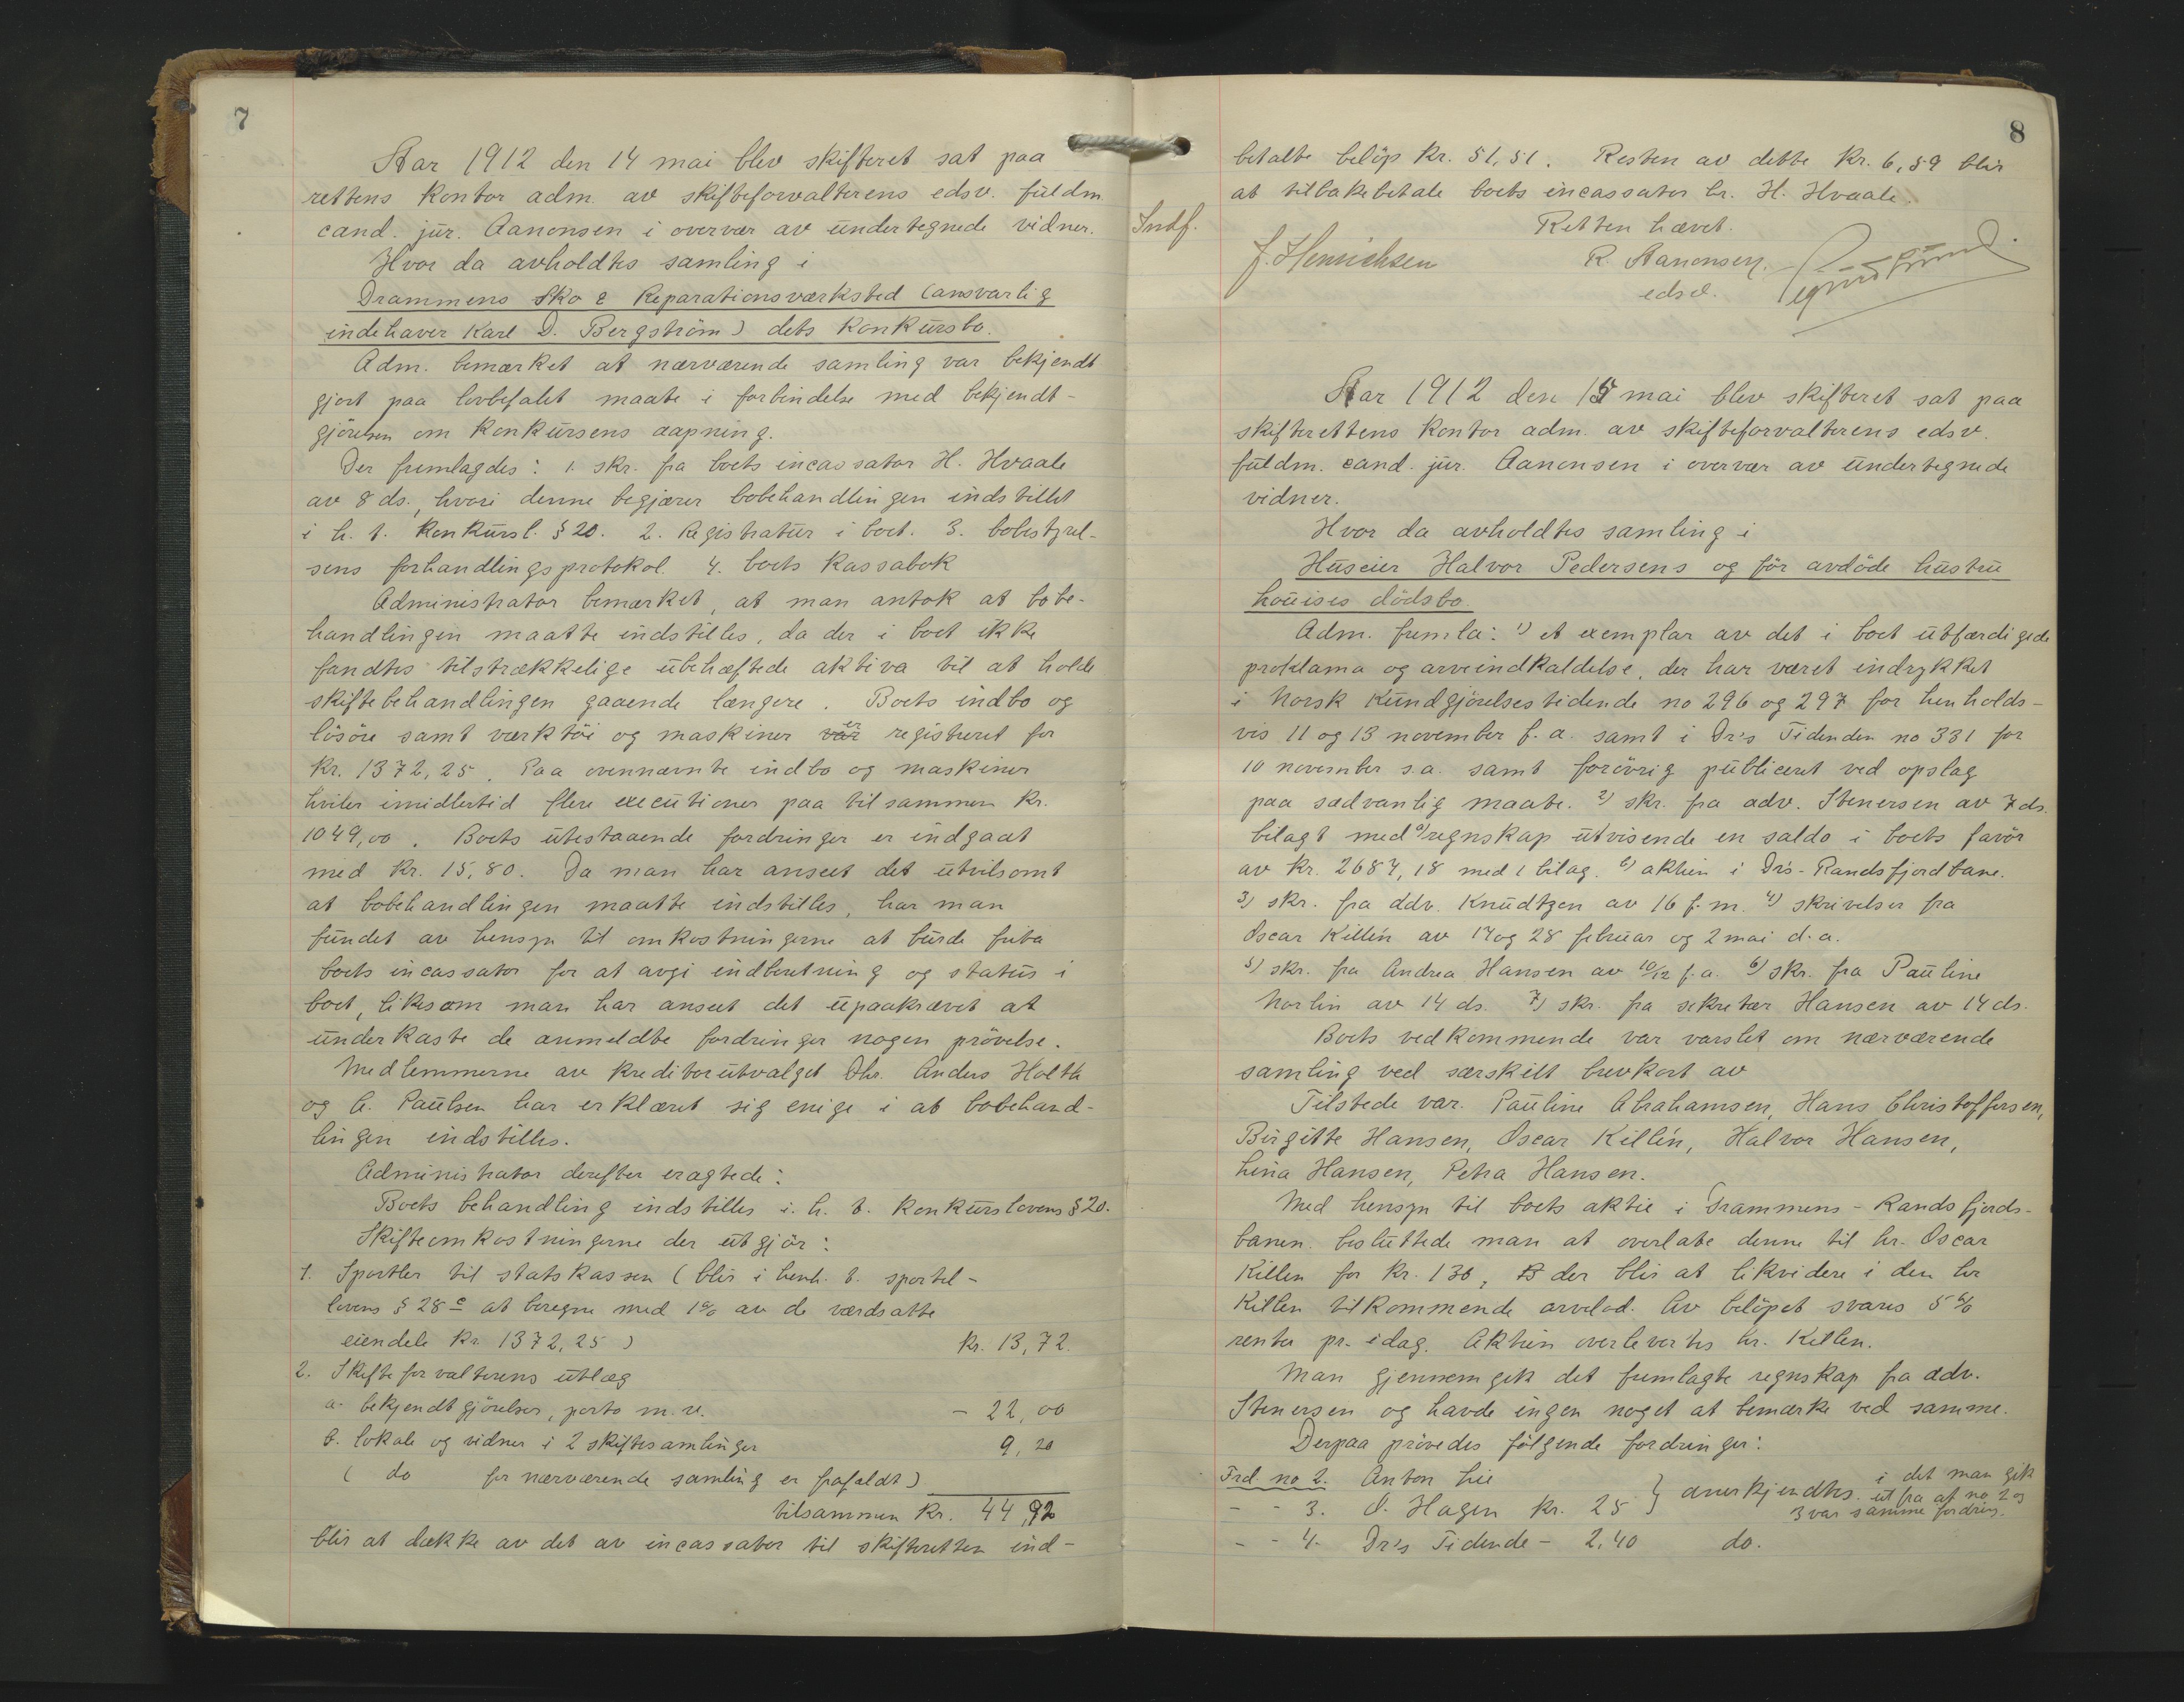 7
Aar 1912 den 14 mai blev skifteret sat paa
rettens kontor adm. av skifteforvalterens edsv. fuldm.
cand. jur. Aanonsen i overvær av undertegnede vidner.
Hvor da avholdtes samling i
Drammens Sko & Reparationsværksted (ansvarlig
indehaver Karl D. Bergström) dets konkursbo.
Adm. bemærket at nærværende samling var bekjendt
gjort paa lovbefalet maate i forbindelse med bekjendt-
gjörelsen om konkursens aapning.
Der fremlagdes: 1. skr. fra boets incassator H. Hvaale
av 8 ds., hvori denne begjærer bobehandlingen indstillet
i h. t. konkursl. § 20. 2. Registratur i boet. 3. bobestyrel-
sens forhandlingsprotokol. 4. boets kassabok
Administrator bemærket, at man antok at bobe-
handlingen maatte indstilles, da der i boet ikke
fandtes tilstrækkelige ubehæftede aktiva til at holde
skiftebehandlingen gaaende længere. Boets indbo og
lösöre samt værktöi og maskiner var er registreret for
kr. 1372,25. Paa ovennævnte indbo og maskiner
hviler imidlertid flere executioner paa tilsammen kr.
1049,00. Boets utestaaende fordringer er indgaat
med kr. 15,80. Da man har anseet det utvilsomt
at bobehandlingen maatte indstilles, har man
fundet av hensyn til omkostningerne at burde frita
boets incassator for at avgi indberetning og status i
boet, likesom man har anseet det upaakrævet at
underkaste de anmeldte fordringer nogen prövelse.
Medlemmerne av kreditorutvalget Dhr. Anders Holth
og A. Paulsen har erklæret sig enige i at bobehand-
lingen indstilles.
Administrator derefter eragtede:
Boets behandling indstilles i. h. t. konkurslovens § 20.
Skifteomkostningerne der utgjör:
1. Sportler til statskassen (blir i henh. t. sportel-
lovens § 28 c at beregne med 1% av de værdsatte
eiendele kr. 1372,25) kr. 13,72.
2. Skifteforvalterens utlæg
a. bekjendtgjörelser, porto m. v. - 22,00
b. lokale og vidner i 2 skiftesamlinger 9,20
( do for nærværende samling er frafaldt)
tilsammen kr. 44,92
blir at dække av det av incassator til skifteretten ind-
8
betalte belöp kr. 51,51. Resten av dette kr. 6,59 blir
at tilbakebetale boets incassator hr. H. Hvaale.
Indf.
Retten hævet.
J. Henrichsen R. Aanonsen.
edsv.
Aar 1912 den 15 mai blev skifteret sat paa
skifterettens kontor adm. av skifteforvalterens edsv.
fuldm. cand. jur. Aanonsen i overvær av undertegnede
vidner.
Hvor da avholdtes samling i
Huseier Halvor Pedersens og för avdöde hustru
Louises dödsbo.
Adm. fremla: 1) et exemplar av det i boet utfærdigede
proklama og arveindkaldelse, der har været indrykket
i Norsk Kundgjörelsestidende no 296 og 297 for henholds-
vis 11 og 13 november f. a. samt i Dr's Tidenden no 331 for
10 november s.a. samt forövrig publiceret ved opslag
paa sædvanlig maate. 2) skr. fra adv. Stenersen av 7 ds.
bilagt med a) regnskap utvisende en saldo i boets favör
av kr. 2687,18 med 1 bilag. b) aktien i Dr's-Randsfjordbane.
3) skr. fra adv. Knudtzen av 16 f. m. 4) skrivelser fra
Oscar Killén av 17 og 28 februar og 2 mai d. a.
5) skr. fra Andrea Hansen av 10/12 f. a. 6) skr. fra Pauline
Norlin av 14 ds. 7) skr. fra sekretær Hansen av 14 ds.
Boets vedkommende var varslet om nærværende
samling ved særskilt brevkort av
Tilstede var. Pauline Abrahamsen, Hans Christoffersen,
Birgitte Hansen, Oscar Killén, Halvor Hansen,
Lina Hansen, Petra Hansen.
Med hensyn til boets aktie i Drammens-Randsfjords-
banen. besluttede man at overlate denne til hr. Oscar
Killen for kr. 136, der blir at likvidere i den hr
Killen tilkommende arvelod. Av belöpet svares 5%
renter pr. idag. Aktien overlevertes hr. Killen.
Man gjennemgik det fremlagte regnskap fra adv.
Stenersen og havde ingen noget at bemærke ved samme.
Derpaa prövedes fölgende fordringer:
Frd. no 2. Anton Lie
- - 3. O. Hagen kr. 25 } anerkjendtes. i det man gik
ut fra at no 2 og
3 var samme fordring.
- - 4. Dr's Tidende - 2,40 do.